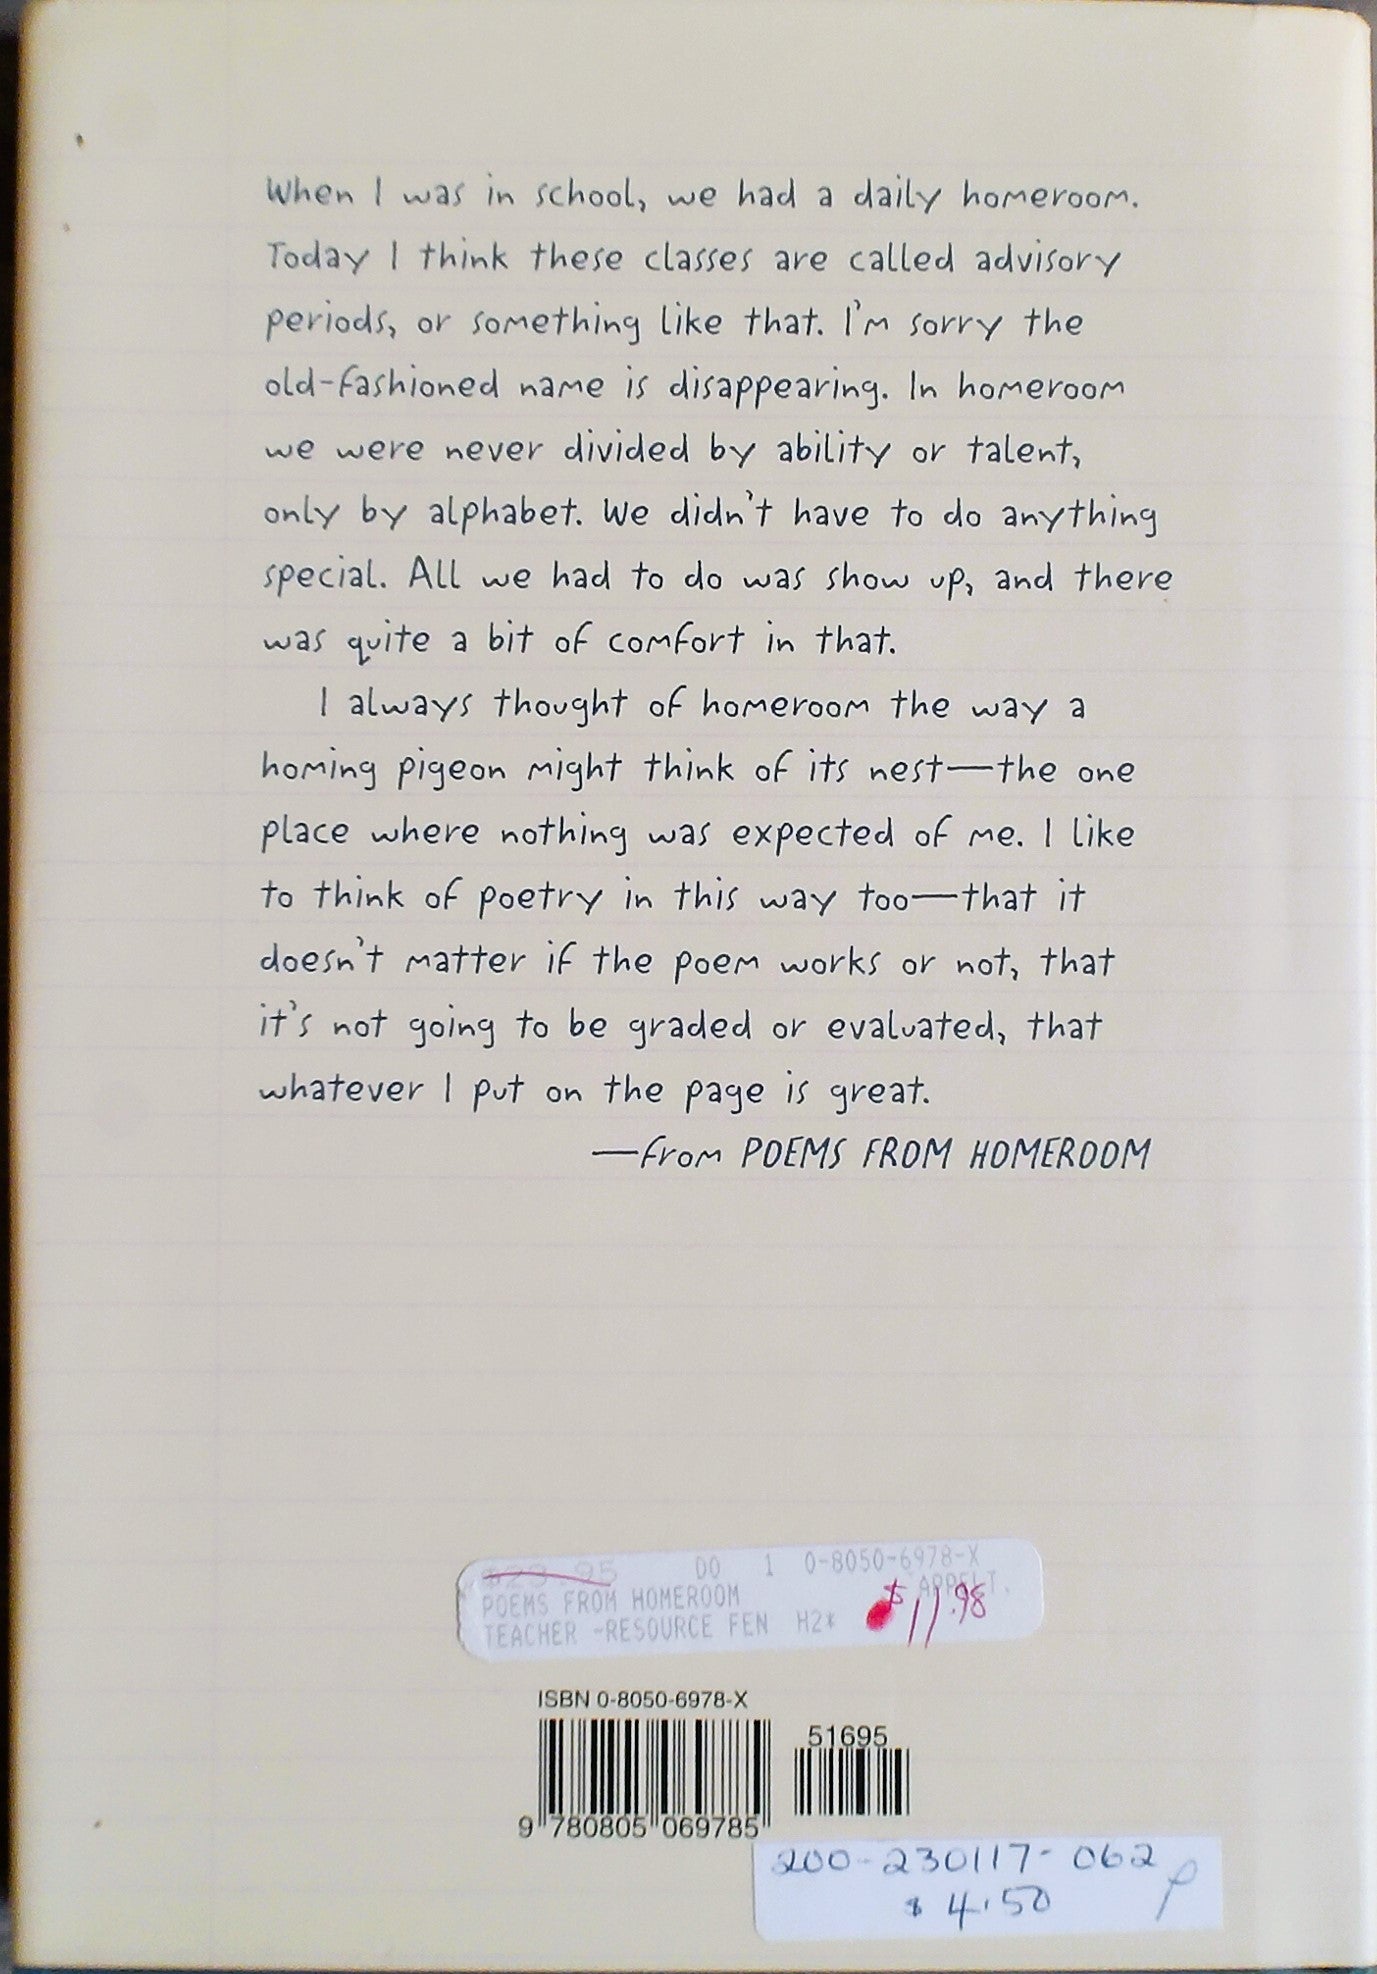 When I was in school, we had a daily homeroom.
Today I think these classes are called advisory
periods, or something like that. I'm sorry the
old-fashioned name is disappearing. In homeroom
we were never divided by ability or talent,
only by alphabet. We didn't have to do anything
special. All we had to do was show up, and there
was quite a bit of comfort in that.
I always thought of homeroom the way a
homing pigeon might think of its nest—the one
place where nothing was expected of me. I like
to think of poetry in this way too—that it
doesn't matter if the poem works or not, that
it's not going to be graded or evaluated, that
whatever I put on the page is great.
—from POEMS FROM HOMEROOM
$23.95 DO 1 0-8050-6978-X
POEMS FROM HOMEROOM APPELT,
TEACHER -RESOURCE FEN H2* $11.98
ISBN 0-8050-6978-X
51695
9 780805 069785
200-230117-062
$4.50